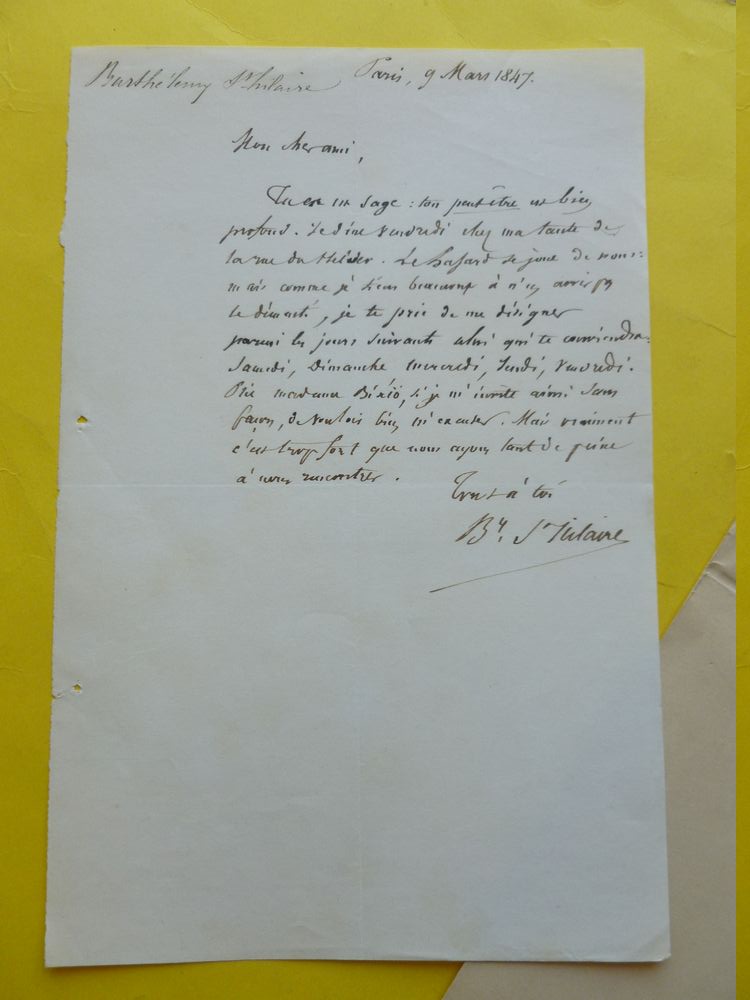 Barthélemy St hilaire Paris, 9 Mars 1847.
Mon cher ami,
Tu es un sage : ton peut-être est bien
profond. Je dîne vendredi chez ma tante de
la rue du Helder. Le hasard se joue de nous :
mais comme je tiens beaucoup à n'en avoir pas
le démenti, je te prie de me désigner
parmi les jours suivants celui qui te conviendra :
Samedi, Dimanche mercredi, Jeudi, vendredi.
Prie madame Bixio, si je m'invite ainsi sans
façon, de vouloir bien m'excuser. Mais vraiment
c'est trop fort que nous ayons tant de peine
à nous rencontrer.
Tout à toi
By. St Hilaire